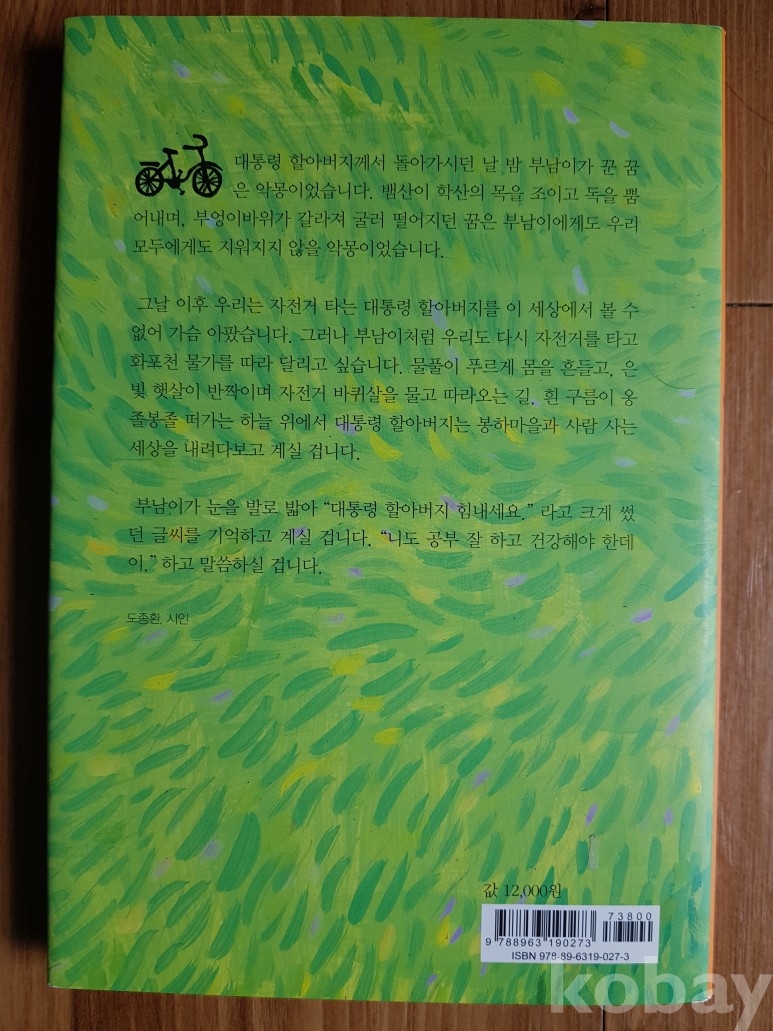 대통령 할아버지께서 돌아가시던 날 밤 부남이가 꾼 꿈
은 악몽이었습니다. 뱀산이 학산의 목을 조이고 독을 뿜
어내며, 부엉이바위가 갈라져 굴러 떨어지던 꿈은 부남이에게도 우리
모두에게도 지워지지 않을 악몽이었습니다.
그날 이후 우리는 자전거 타는 대통령 할아버지를 이 세상에서 볼 수
없어 가슴 아팠습니다. 그러나 부남이처럼 우리도 다시 자전거를 타고
화포천 물가를 따라 달리고 싶습니다. 물풀이 푸르게 몸을 흔들고, 은
빛 햇살이 반짝이며 자전거 바퀴살을 물고 따라오는 길. 흰 구름이 옹
졸봉졸 떠가는 하늘 위에서 대통령 할아버지는 봉하마을과 사람 사는
세상을 내려다보고 계실 겁니다.
부남이가 눈을 발로 밟아 “대통령 할아버지 힘내세요.” 라고 크게 썼
던 글씨를 기억하고 계실 겁니다. “니도 공부 잘 하고 건강해야 한데
이.” 하고 말씀하실 겁니다.
도종환, 시인
값 12,000원
73800
9 788963 190273
ISBN 978-89-6319-027-3
kobay